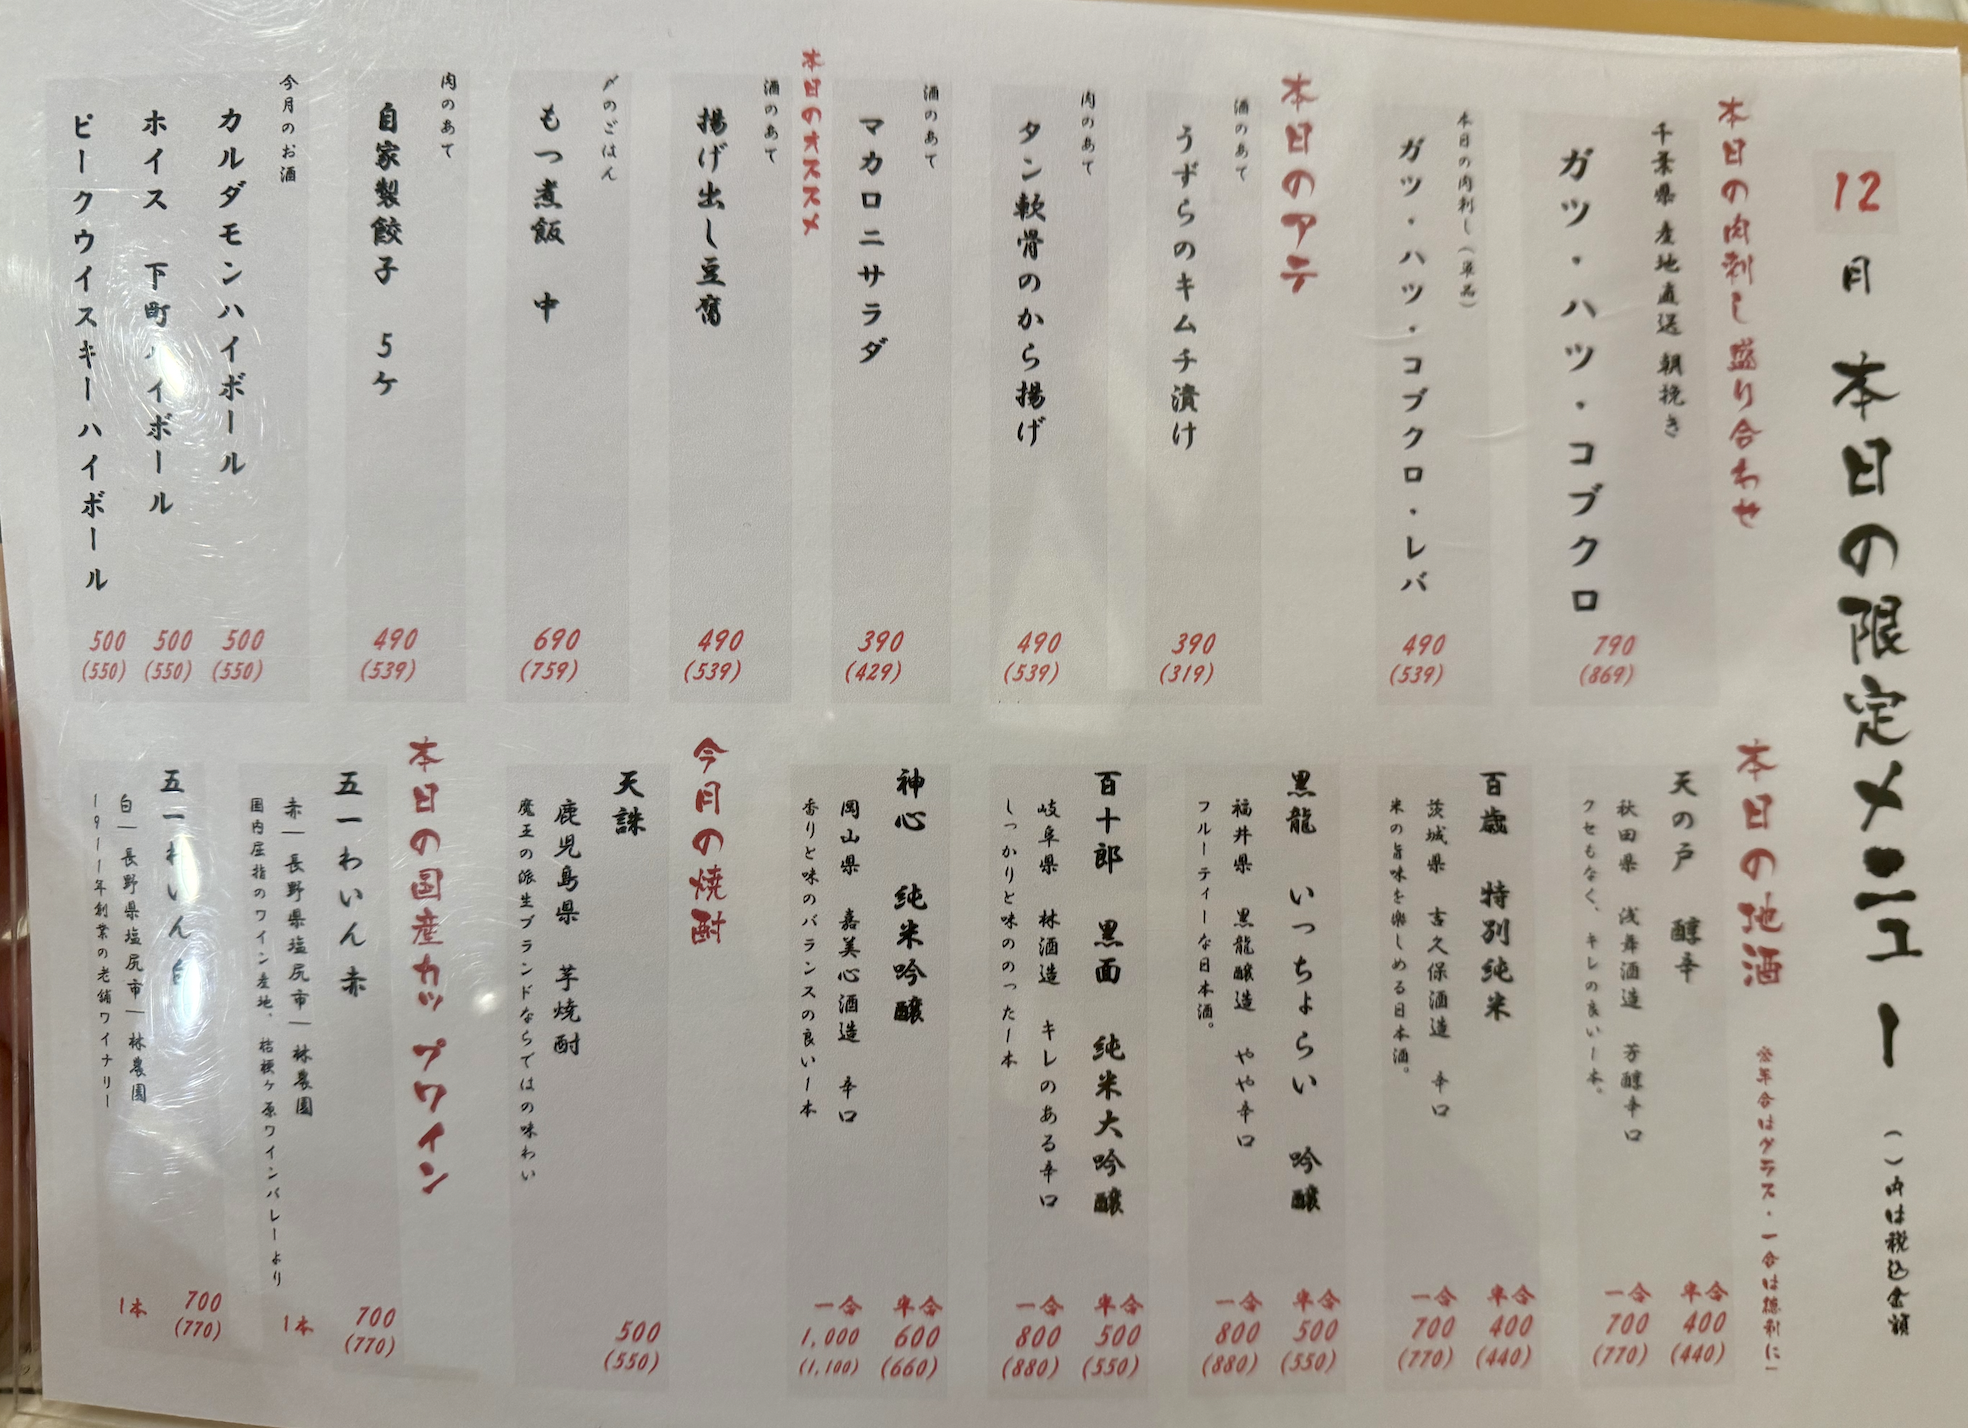 12月 本日の限定メニュー ( )内は税込金額
本日の肉刺し盛り合わせ
千葉県産地直送 朝挽き
ガツ・ハツ・コブクロ
790
(869)
本日の肉刺し(単品)
ガツ・ハツ・コブクロ・レバ
490
(539)
本日のアテ
酒のあて
うずらのキムチ漬け
390
(319)
肉のあて
タン軟骨のから揚げ
490
(539)
酒のあて
マカロニサラダ
390
(429)
本日のオススメ
酒のあて
揚げ出し豆腐
490
(539)
〆のごはん
もつ煮飯 中
690
(759)
肉のあて
自家製餃子 5ケ
490
(539)
今月のお酒
カルダモンハイボール
500
(550)
ホイス 下町ハイボール
500
(550)
ピークウイスキーハイボール
500
(550)
本日の地酒 ※半合はグラス・一合は徳利に
天の戸 醇辛
秋田県 浅舞酒造 芳醇辛口
クセもなく、キレの良い1本。
半合
400
(440)
一合
700
(770)
百歳 特別純米
茨城県 吉久保酒造 辛口
米の旨味を楽しめる日本酒。
半合
400
(440)
一合
700
(770)
黒龍 いっちょらい 吟醸
福井県 黒龍醸造 やや辛口
フルーティーな日本酒。
半合
500
(550)
一合
800
(880)
百十郎 黒面 純米大吟醸
岐阜県 林酒造 キレのある辛口
しっかりと味ののった1本
半合
500
(550)
一合
800
(880)
神心 純米吟醸
岡山県 嘉美心酒造 辛口
香りと味のバランスの良い1本
半合
600
(660)
一合
1,000
(1,100)
今月の焼酎
天誅
鹿児島県 芋焼酎
魔王の派生ブランドならではの味わい
500
(550)
本日の国産カップワイン
五一わいん赤
赤|長野県塩尻市|林農園
国内屈指のワイン産地、桔梗ヶ原ワインバレーより
700
(770)
1本
五一わいん白
白|長野県塩尻市|林農園
1911年創業の老舗ワイナリー
700
(770)
1本